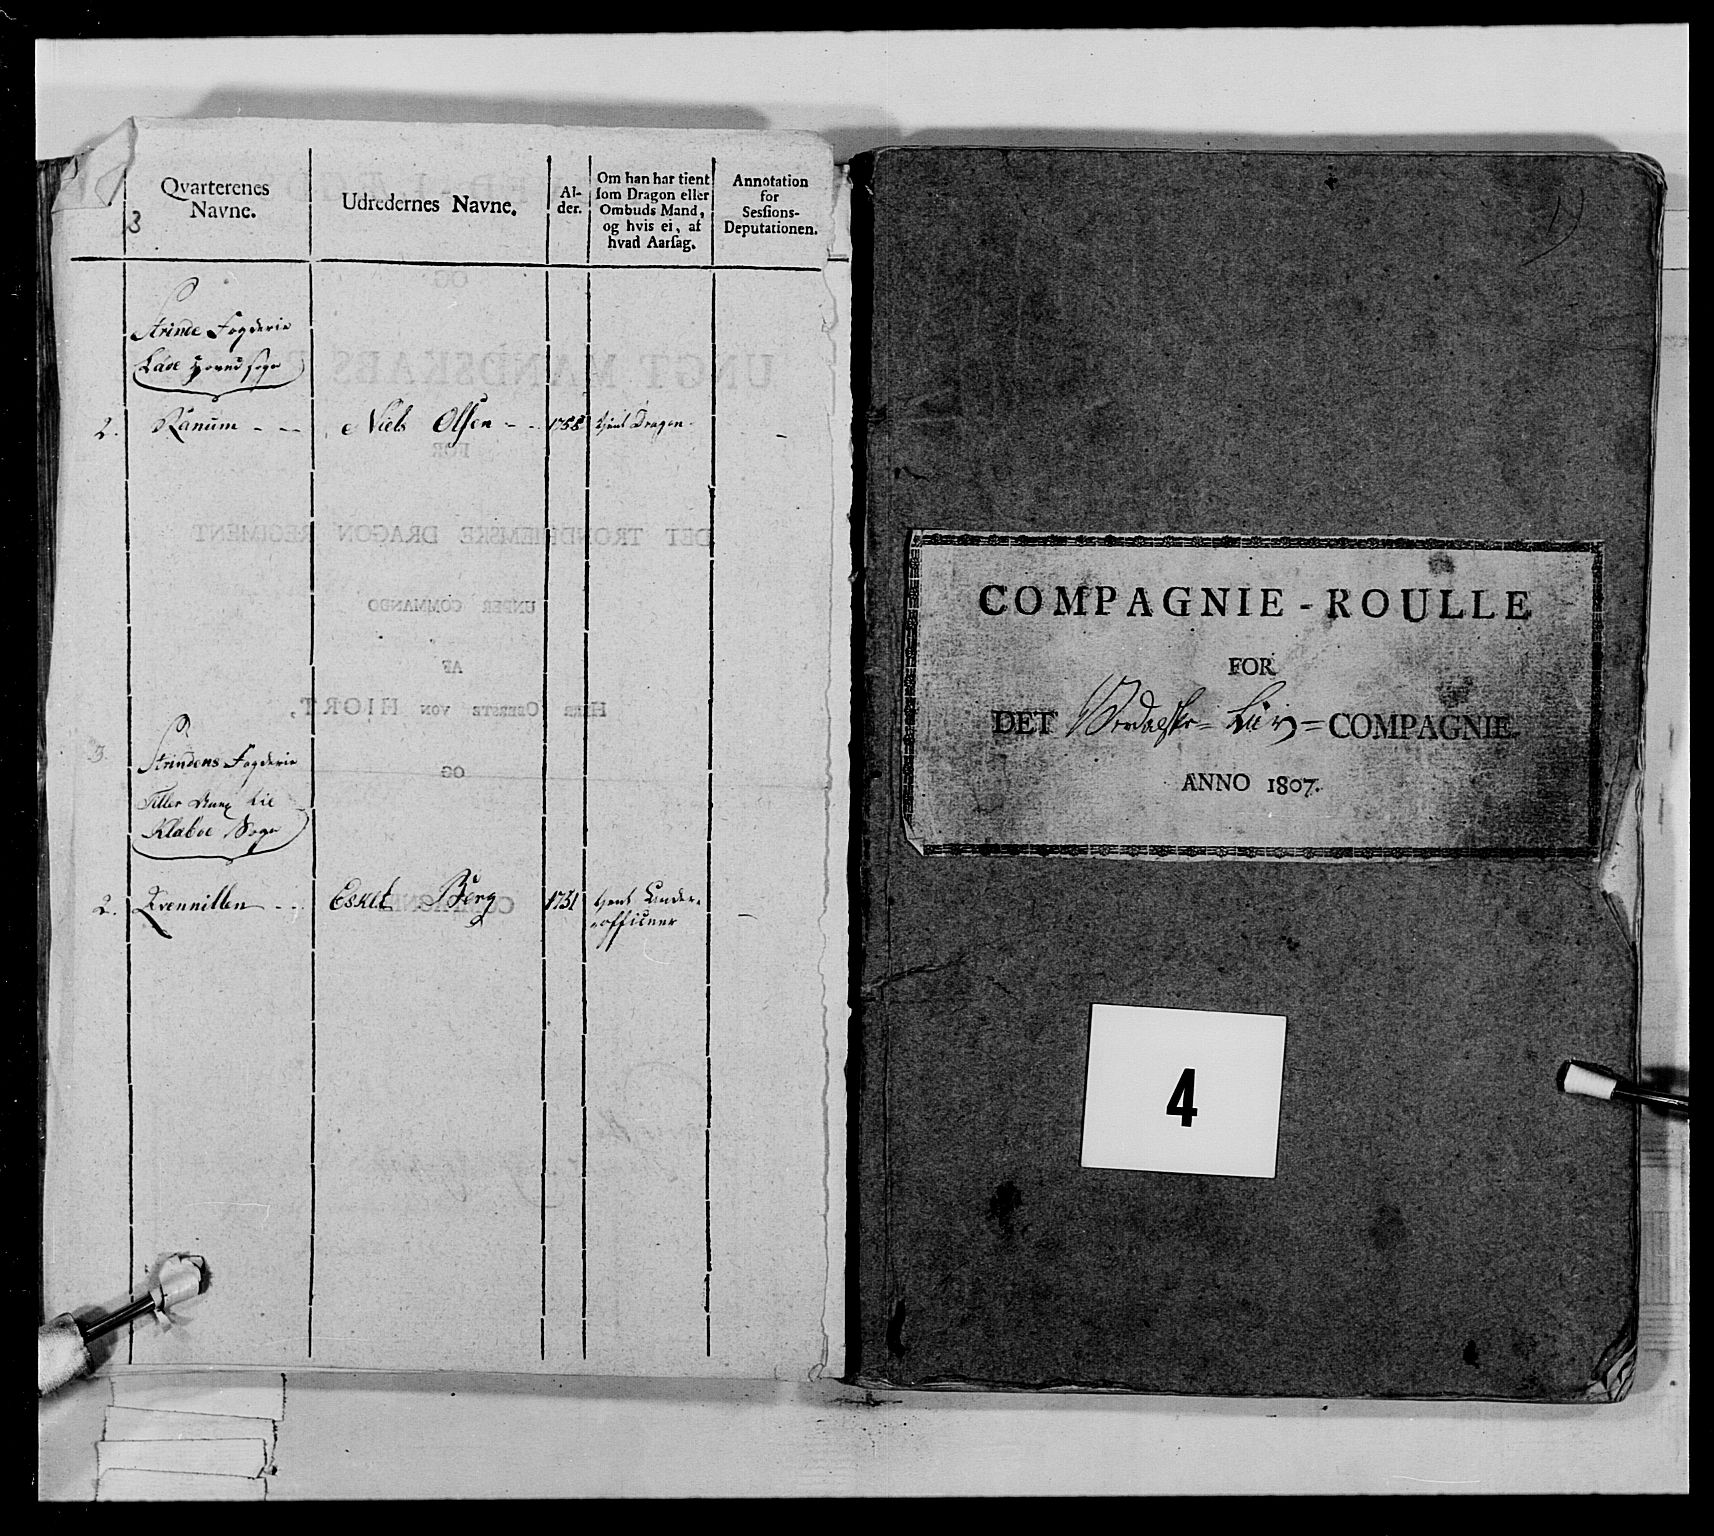 Qvarterenes
Navne.
3
Udredernes Navne.
Al-
der.
Om han har tient
som Dragon eller
Ombuds Mand,
og hvis ei, af
hvad Aarsag.
Annotation
for
Sessions-
Deputationen.
Strinde Fogderie
Lade Hoved sogn
2. Ranum - -- Niels Olsen - - 1758 tjent Dragon - -
3. Strindens Fogderie
Tiller Ann til
Klæboe Sogn
2. Qvennillen - - Eskel Berg 1751 tjent Under-
officeer -
1)
COMPAGNIE-ROULLE
FOR
DET Værdalske Liv=COMPAGNIE.
ANNO 1807.
4